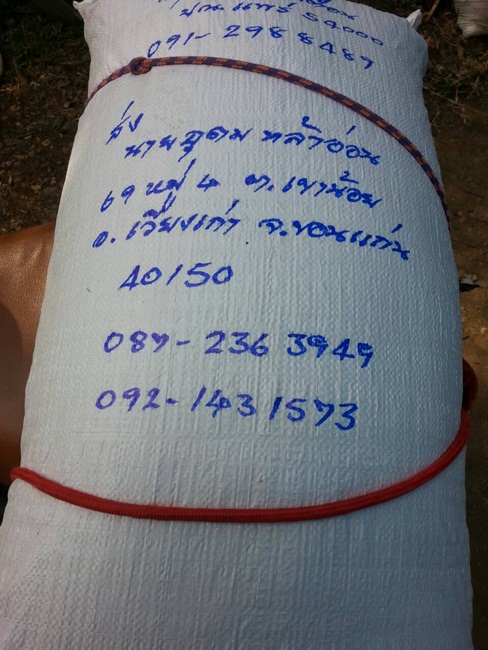 54000
091-298 8487
ส่ง
นายอุดม หล้าอ่อน
69 หมู่ 4 ต.เขาน้อย
อ.เวียงเก่า จ.ขอนแก่น
40150
087-236 3949
092-1431573